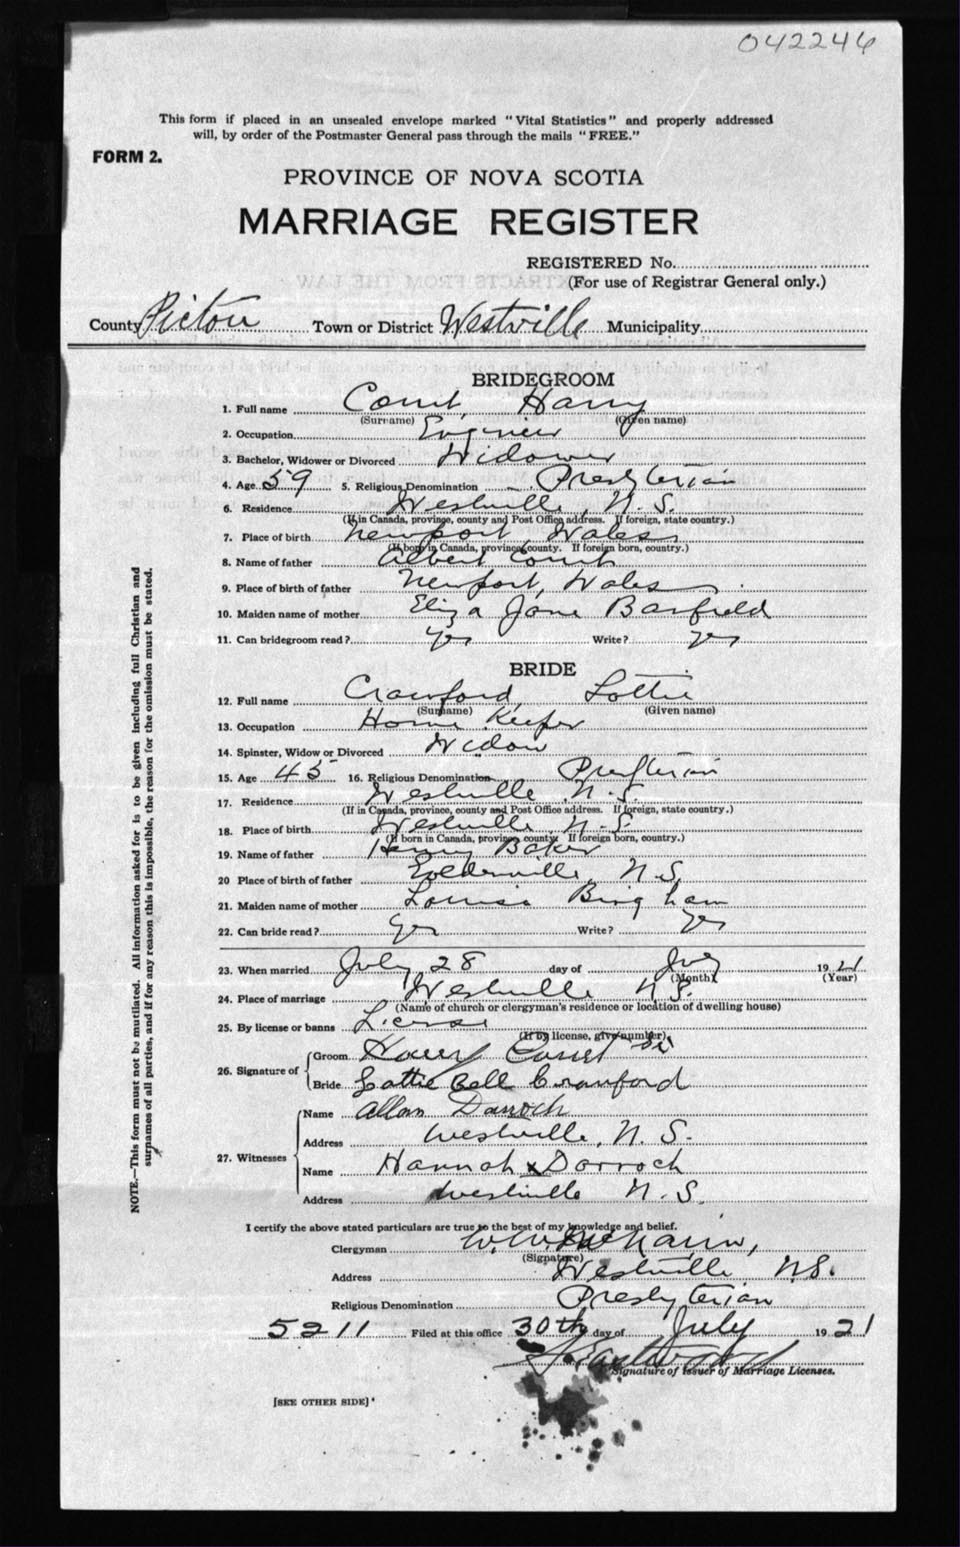 042246
This form if placed in an unsealed envelope marked "Vital Statistics" and properly addressed
will, by order of the Postmaster General pass through the mails "FREE."
FORM 2.
PROVINCE OF NOVA SCOTIA
MARRIAGE REGISTER
REGISTERED No.
(For use of Registrar General only.)
County Pictou Town or District Westville Municipality
BRIDEGROOM
1. Full name Harry
(Surname) (Given name)
2. Occupation Engineer
3. Bachelor, Widower or Divorced Widower
4. Age 59 5. Religious Denomination Presbyterian
6. Residence Westville, N.S.
(If in Canada, province, county and Post Office address. If foreign, state country.)
7. Place of birth Newport, Wales
(If born in Canada, province, county. If foreign born, country.)
8. Name of father Albert
9. Place of birth of father Newport, Wales
10. Maiden name of mother Eliza Jane Barfield
11. Can bridegroom read? yes Write? yes
BRIDE
12. Full name Crawford, Lottie
(Surname) (Given name)
13. Occupation Home Keeper
14. Spinster, Widow or Divorced Widow
15. Age 45 16. Religious Denomination
17. Residence Westville N.S.
(If in Canada, province, county and Post Office address. If foreign, state country.)
18. Place of birth Westville N.S.
(If born in Canada, province, county. If foreign born, country.)
19. Name of father Henry Baker
20 Place of birth of father N.S.
21. Maiden name of mother Louisa Bingham
22. Can bride read? yes Write? yes
23. When married July 28 day of July 1921
(Month) (Year)
24. Place of marriage Westville N.S.
(Name of church or clergyman's residence or location of dwelling house)
25. By license or banns License
(If by license, give number)
26. Signature of
Groom Harry
Bride Lottie Bell Crawford
27. Witnesses
Name Allan Darroch
Address Westville, N.S.
Name Hannah x Darroch
Address Westville N.S.
I certify the above stated particulars are true to the best of my knowledge and belief.
Clergyman W.W.
(Signature)
Address Westville N.S.
Religious Denomination Presbyterian
5211 Filed at this office 30th day of July 1921
Signature of Issuer of Marriage Licenses.
[SEE OTHER SIDE]
NOTE.—This form must not be mutilated. All information asked for is to be given including full Christian and
surnames of all parties, and if for any reason this is impossible, the reason for the omission must be stated.